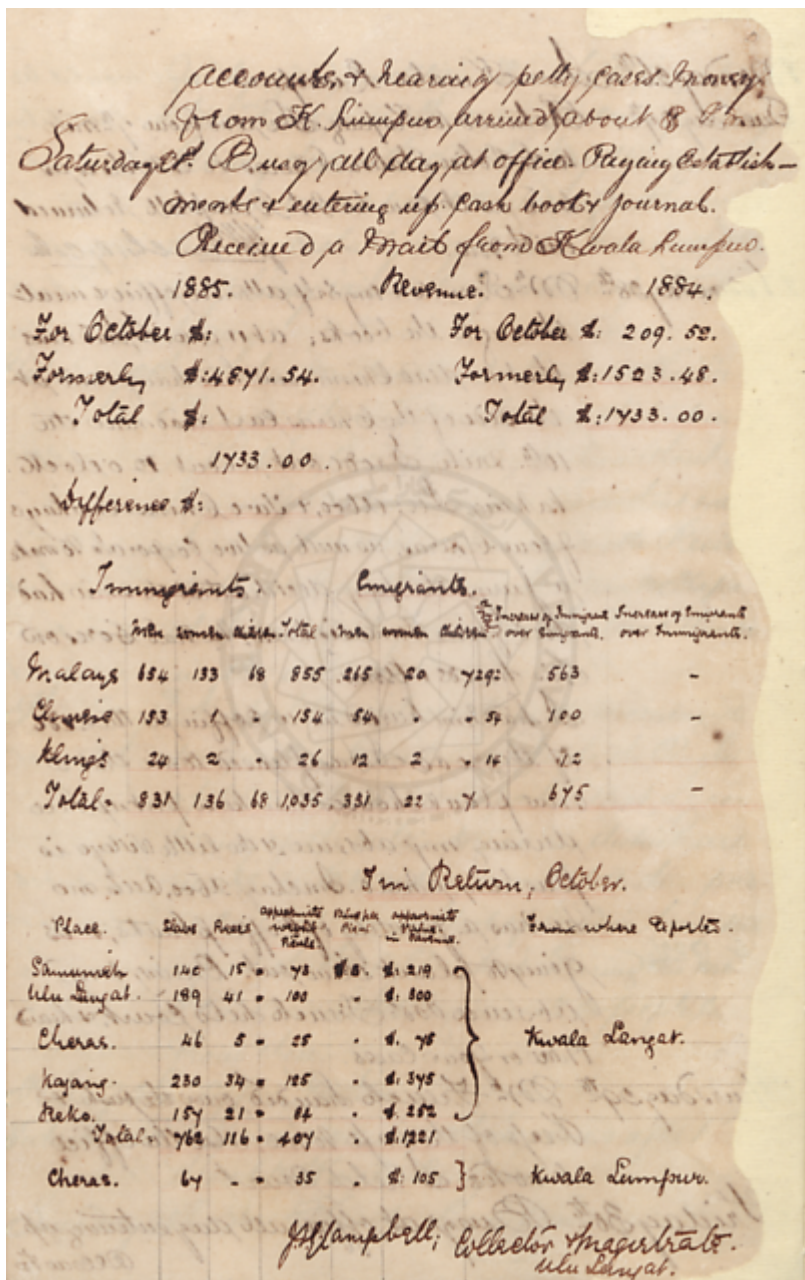 accounts & hearing petty cases. Money
from K. Lumpur arrived about 8 P.m.
Saturday 31st. Busy all day at office. Paying establish-
ments & entering up Cash book & journal.
Received a Mail from Kwala Lumpur.
1885. Revenue. 1884.
For October $: For October $: 209.52.
Formerly $: 4871.54. Formerly $: 1523.48.
Total $: Total $: 1733.00.
1733.00.
Difference $:
Immigrants. Emigrants.
Men women children Total Men women children Total Increase of Immigrants over Emigrants. Increase of Emigrants over Immigrants.
Malays 654 133 68 855 265 20 7 292 563 -
Chinese 153 1 " 154 54 " " 54 100 -
Klings 24 2 " 26 12 2 " 14 12
Total 831 136 68 1,035 331 22 7 675 -
Tin Return, October.
Place. Slabs Pieces approximate weight Piculs. approximate Value From where Exported.
140 15 " 73 $3. $: 219
Ulu Langat. 189 41 " 100 " $: 300
Cheras. 46 5 " 25 " $: 75 Kwala Langat.
Kajang. 230 34 " 125 " $: 375
Reko. 157 21 " 84 " $: 252
Total 762 116 " 407 " $: 1221
Cheras. 64 " " 35 " $: 105 } Kwala Lumpur.
JACampbell, Collector & Magistrate.
Ulu Langat.